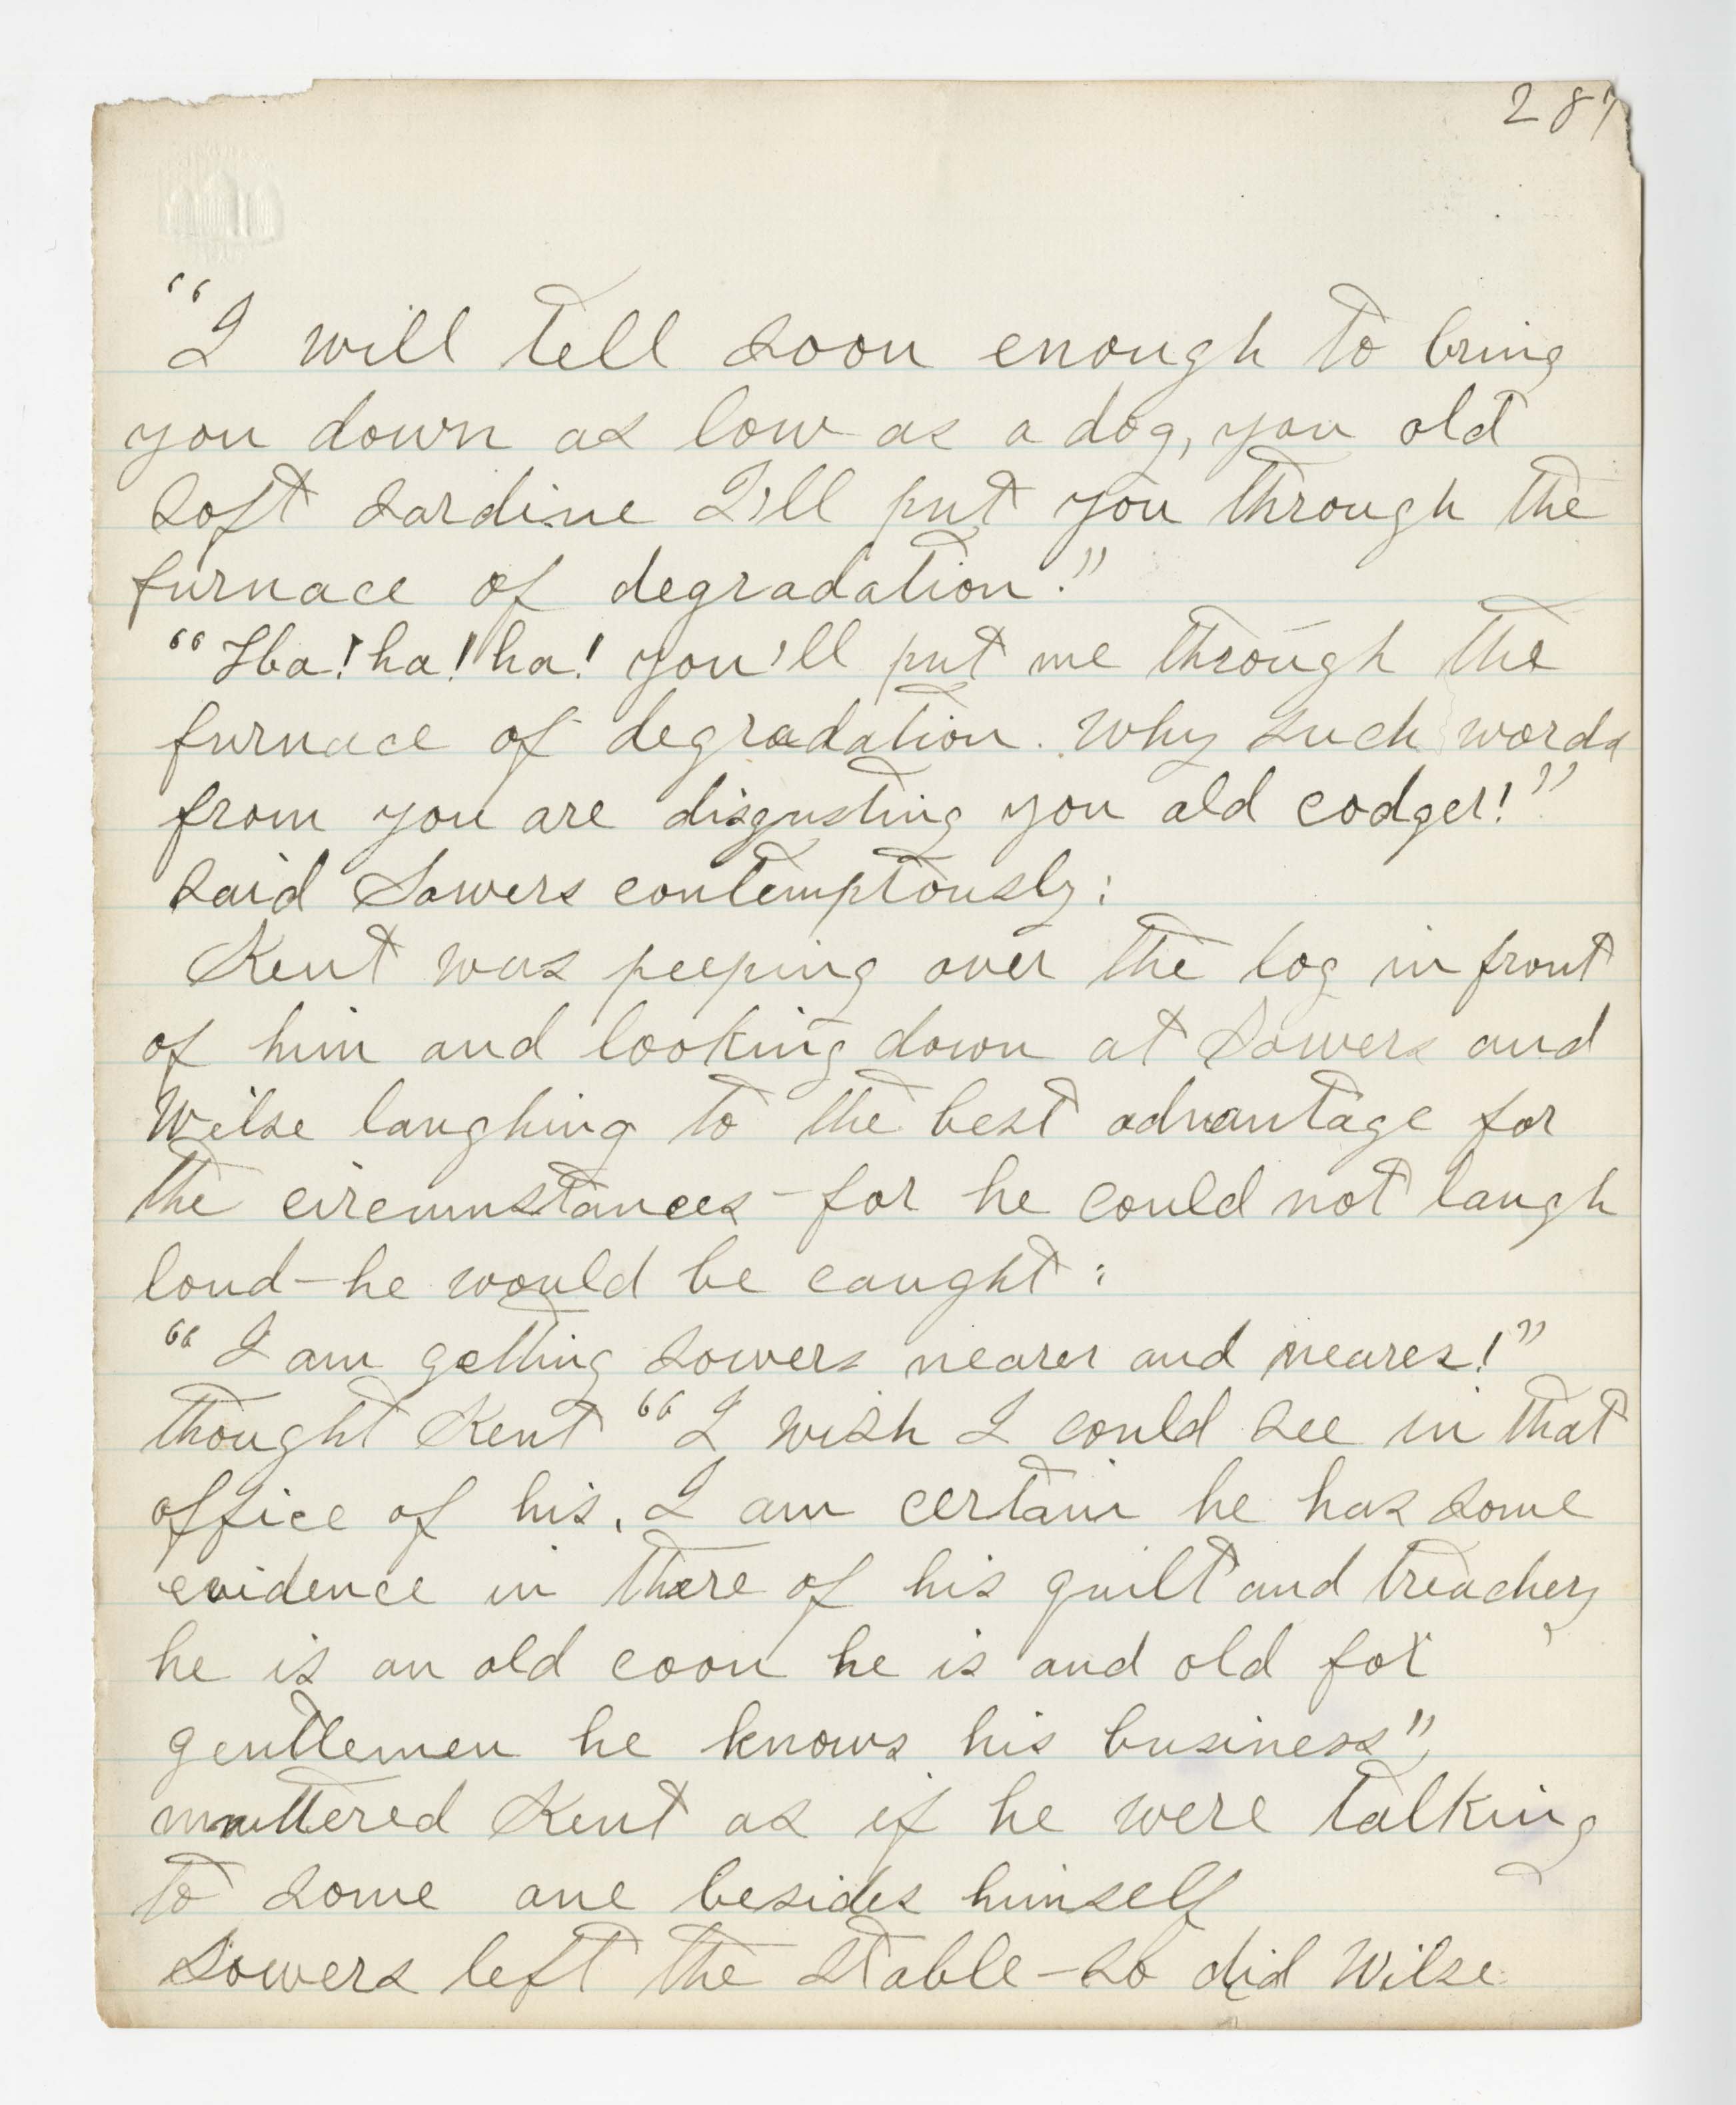 287
"I will tell soon enough to bring
you down as low as a dog, you old
soft sardine I'll put you through the
furnace of degradation."
"Ha! ha! ha! you'll put me through the
furnace of degradation. Why such words
from you are disgusting you old codger!"
said Sowers contemptously:
Kent was peeping over the log in front
of him and looking down at Sowers and
Wilse laughing to the best advantage for
the circumstances - for he could not laugh
loud - he would be caught:
"I am getting Sowers nearer and nearer!"
thought Kent "I wish I could see in that
office of his. I am certain he has some
evidence in there of his guilt and treachery
he is an old coon he is and old fox
gentlemen he knows his business",
muttered Kent as if he were talking
to some one besides himself
Sowers left the stable - so did Wilse